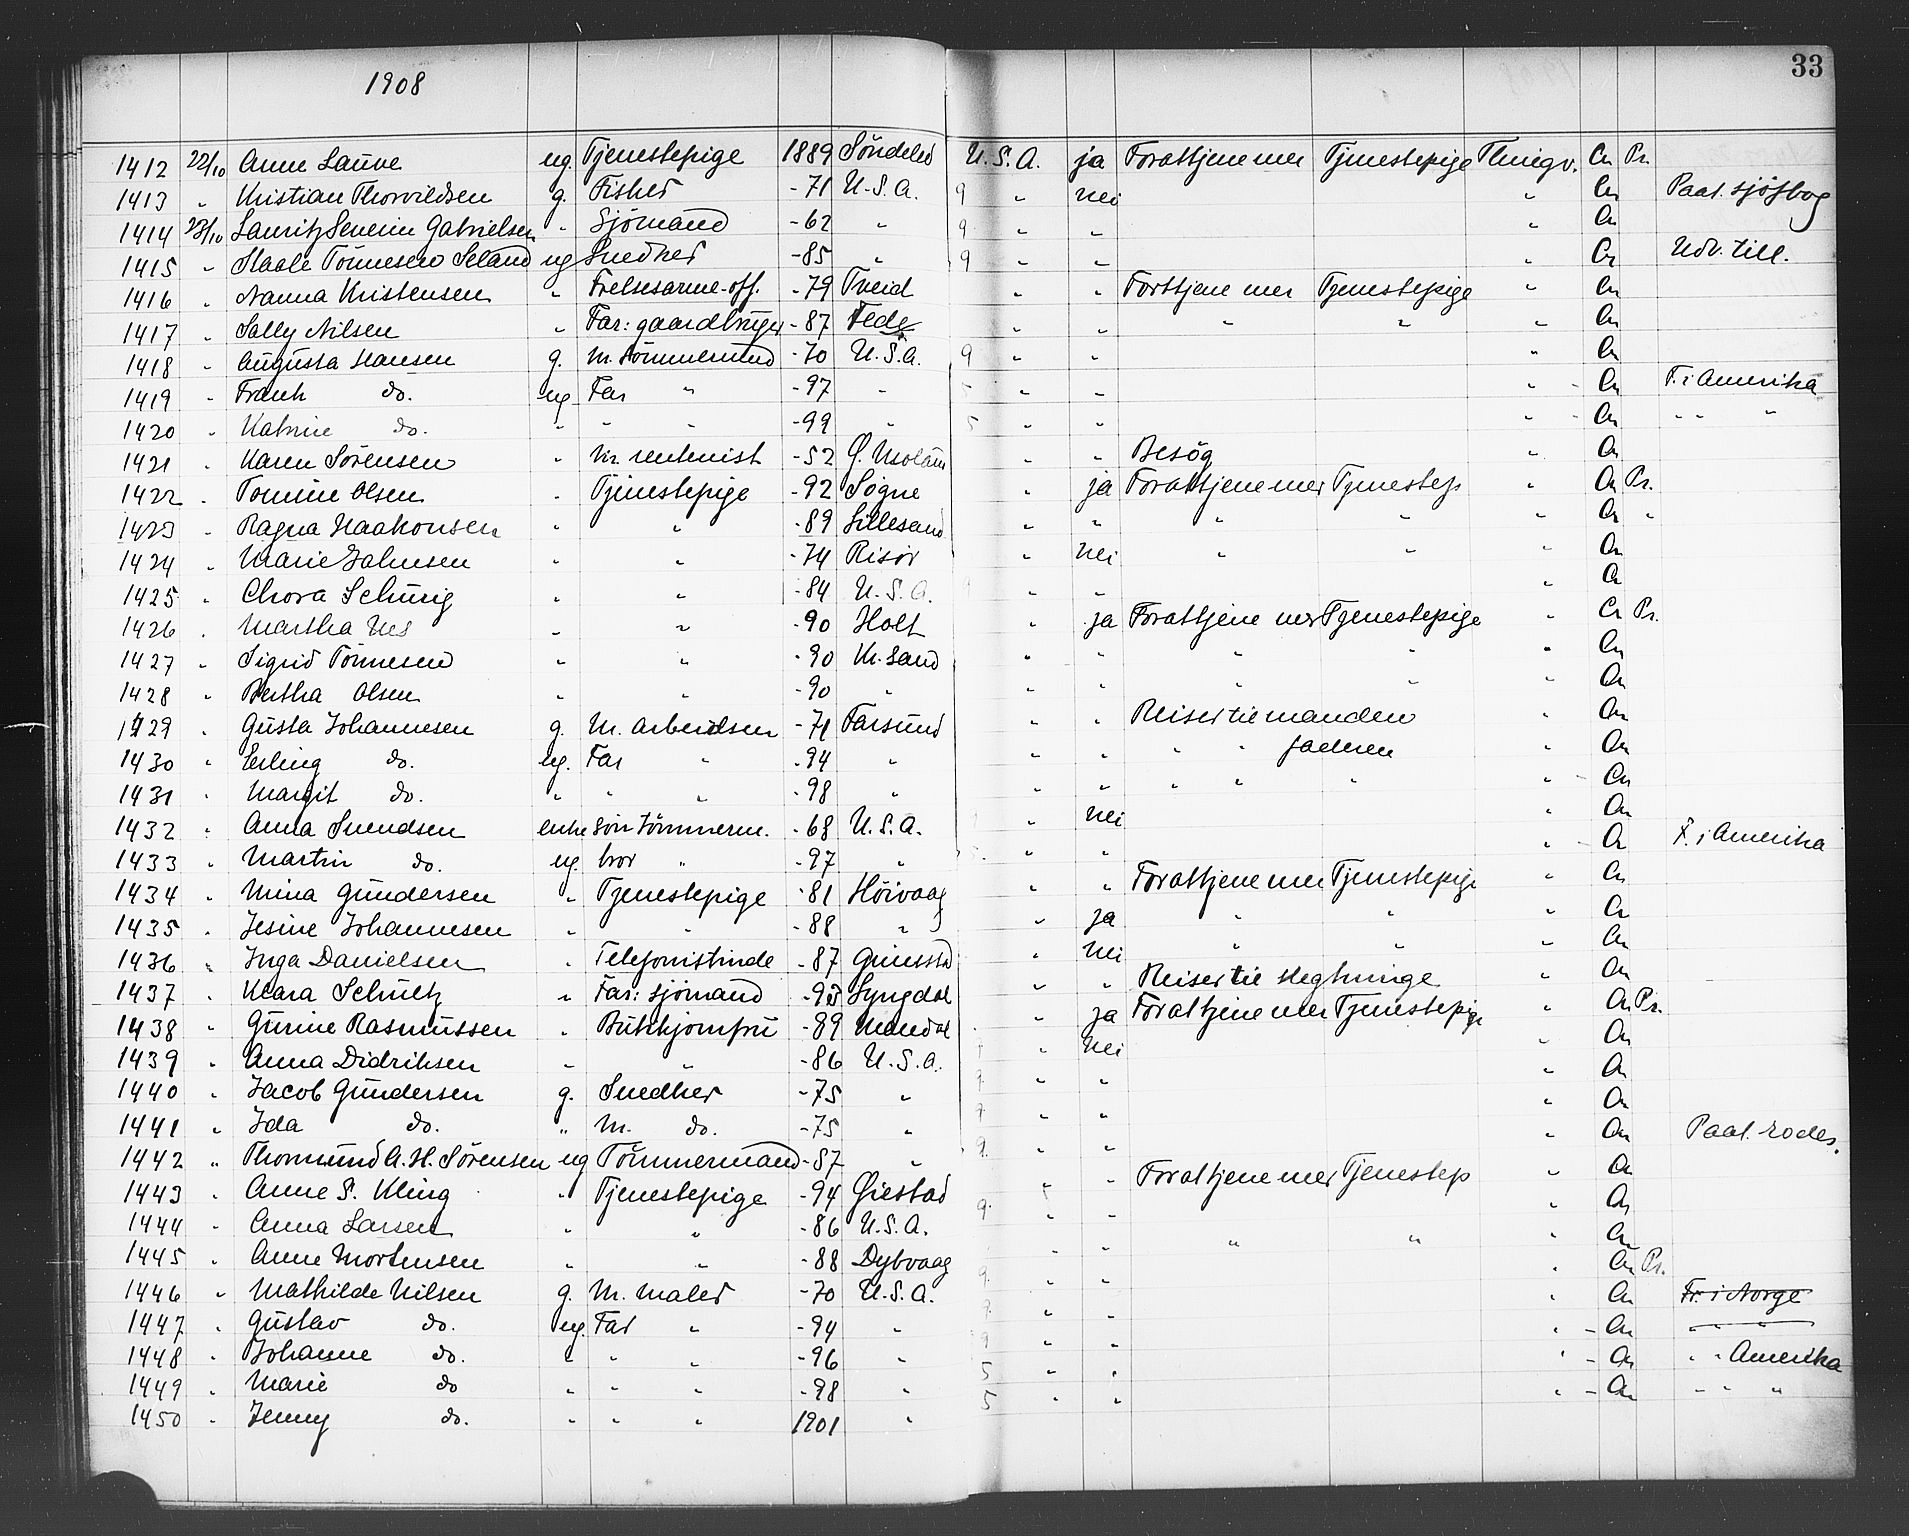 1908 33
1412 22/10 Anne Lauve ug. Tjenestepige 1889 Söndeled U.S.A. ja Forattjene mer Tjenestepige Thingv. Cn Pr.
1413 " Kristian Thorvildsen g. Fisker -71 U.S.A. 9 " nei " Cn Paat. sjöfbog
1414 23/10 Lauritz Severin Gabrielsen " Sjömand -62 " 9 " " " Cn
1415 " Staale Tönnesen Seland ug Snedker -85 " 9 " " " Cn Udv. till.
1416 " Nanna Kristensen " Frelsesarme-off. -79 Tveid " " Forattjene mer Tjenestepige " Cn
1417 " Sally Nilsen " Far: gaardbruger -87 Fede " " " " " Cn
1418 " Augusta Hansen g. M. tömmermand -70 U.S.A. 9 " " " Cn
1419 " Frank do. ug Far " -97 " 5 " " " - Cn F. i Amerika
1420 " Katrine do. " " " -99 " 5 " " " - Cn " " "
1421 " Karen Sörensen " m. rentenist -52 Ø. Moland " " Besög " Cn
1422 " Tomine Olsen " Tjenestepige -92 Sögne " ja Forattjene mer Tjenestep " Cn Pr.
1423 " Ragna Haakonsen " " -89 Lillesand " " " " " Cn "
1424 " Marie Johnsen " " -74 Risör " nei " " " Cn
1425 " Chora Schurig " " -84 U.S.A. 9 " " " Cn
1426 " Martha Nes " " -90 Holt " ja Forattjene mer Tjenestepige " Cn Pr.
1427 " Sigrid Tönnesen " " -90 Kr.sand " " " " " Cn
1428 " Bertha Olsen " " -90 " " " " " " Cn
1429 " Gusta Johannesen g. M. arbeidsm -71 Farsund " " Reiser til manden " Cn
1430 " Erling do. ug. Far " -94 " " " " " faderen " Cn
1431 " Margit do. " " " -98 " " " " " " " - Cn
1432 " Anna Svendsen enke sön tömmerm. -68 U.S.A. " nei " Cn
1433 " Martin do. ug. bror " -97 " 5 " " " - Cn F. i Amerika
1434 " Mina Gundersen " Tjenestepige -81 Höivaag " " Forattjene mer Tjenestepige " Cn
1435 " Jesine Johannesen " " -88 " " ja " " " Cn
1436 " Inga Danielsen " Telefonistinde -87 Grimstad " nei " " " Cn
1437 " Klara Schultz " Far: sjömand -93 Lyngdal " " Reiser til slegtninge " Cn
1438 " Gurine Rasmussen " Butikjomfru -89 Mandal " ja Forattjene mer Tjenestepige " Cn Pr.
1439 " Anna Didriksen " " -86 U.S.A. 9 " nei " Cn
1440 " Jacob Gundersen g. Snedker -75 " 9 " " " Cn
1441 " Ida do. " M. do. -75 " 9 " " " Cn
1442 " Thormund A.H. Sörensen ug Tömmermand -87 " 9 " " " Cn Paat. rodes.
1443 " Anne S. Kling " Tjenestepige -94 Øiestad " " Forattjene mer Tjenestep " Cn
1444 " Anna Larsen " " -86 U.S.A. 9 " " " Cn
1445 " Anne Mortensen " " -88 Dybvaag " " " " " Cn
1446 " Mathilde Nilsen g. M. maler -70 U.S.A. 9 " " " Cn Pr.
1447 " Gustav do. ug. Far " -94 " 9 " " " Cn Fr. i Norge
1448 " Johanne do. " " " -96 " 9 " " " - Cn " " "
1449 " Marie do " " " -98 " 5 " " " - Cn " " Amerika
1450 " Jenny do. " " " 1901 " 5 " " " - Cn " " "